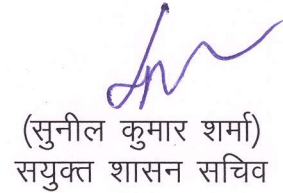 (सुनील कुमार शर्मा)
सयुक्त शासन सचिव